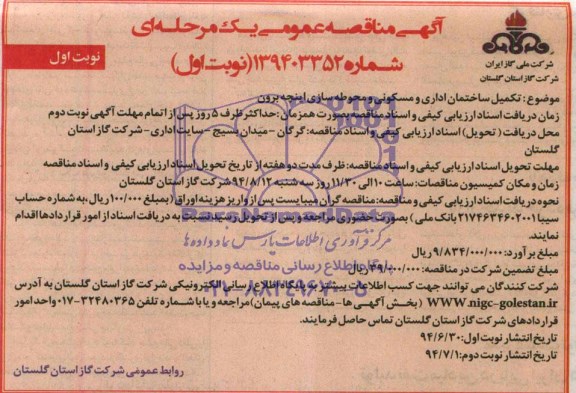 آگهی مناقصه عمومی یک مرحله‌ای
شماره ۱۳۹۴۰۳۳۵۲ (نوبت اول)
نوبت اول
شرکت ملی گاز ایران
شرکت گاز استان گلستان
موضوع: تکمیل ساختمان اداری و مسکونی و محوطه سازی اینچه برون
زمان دریافت اسناد ارزیابی کیفی و اسناد مناقصه بصورت همزمان: حداکثر ظرف ۵ روز پس از اتمام مهلت آگهی نوبت دوم
محل دریافت (تحویل) اسناد ارزیابی کیفی و اسناد مناقصه: گرگان - میدان بسیج - سایت اداری - شرکت گاز استان
گلستان
مهلت تحویل اسناد ارزیابی کیفی و اسناد مناقصه: ظرف مدت دو هفته از تاریخ تحویل اسناد ارزیابی کیفی و اسناد مناقصه
زمان و مکان کمیسیون مناقصات: ساعت ۱۰ الی ۱۱/۳۰ روز سه شنبه ۹۴/۸/۱۲ شرکت گاز استان گلستان
نحوه دریافت اسناد ارزیابی کیفی و مناقصه: مناقصه گران میبایست پس از واریز هزینه اوراق (بمبلغ ۱۰۰/۰۰۰ ریال به شماره حساب
سیبا ۲۱۷۴۶۳۴۶۰۲۰۰۱ بانک ملی) بصورت حضوری مراجعه و پس از تحویل رسید نسبت به دریافت اسناد از امور قراردادها اقدام
نمایند.
مبلغ برآورد: ۹/۸۳۴/۰۰۰/۰۰۰ ریال
مبلغ تضمین شرکت در مناقصه: ۳۹۰/۰۰۰/۰۰۰ ریال
شرکت کنندگان می توانند جهت کسب اطلاعات بیشتر به پایگاه اطلاع رسانی الکترونیکی شرکت گاز استان گلستان به آدرس
WWW.nigc-golestan.ir (بخش آگهی ها - مناقصه های پیمان) مراجعه و یا با شماره تلفن ۳۲۴۸۰۳۶۵-۰۱۷ واحد امور
قراردادهای شرکت گاز استان گلستان تماس حاصل فرمایند.
تاریخ انتشار نوبت اول: ۹۴/۶/۳۰
تاریخ انتشار نوبت دوم: ۹۴/۷/۱
روابط عمومی شرکت گاز استان گلستان
مرکز فرآوری اطلاعات پارس نماد داده ها
پایگاه اطلاع رسانی مناقصه و مزایده